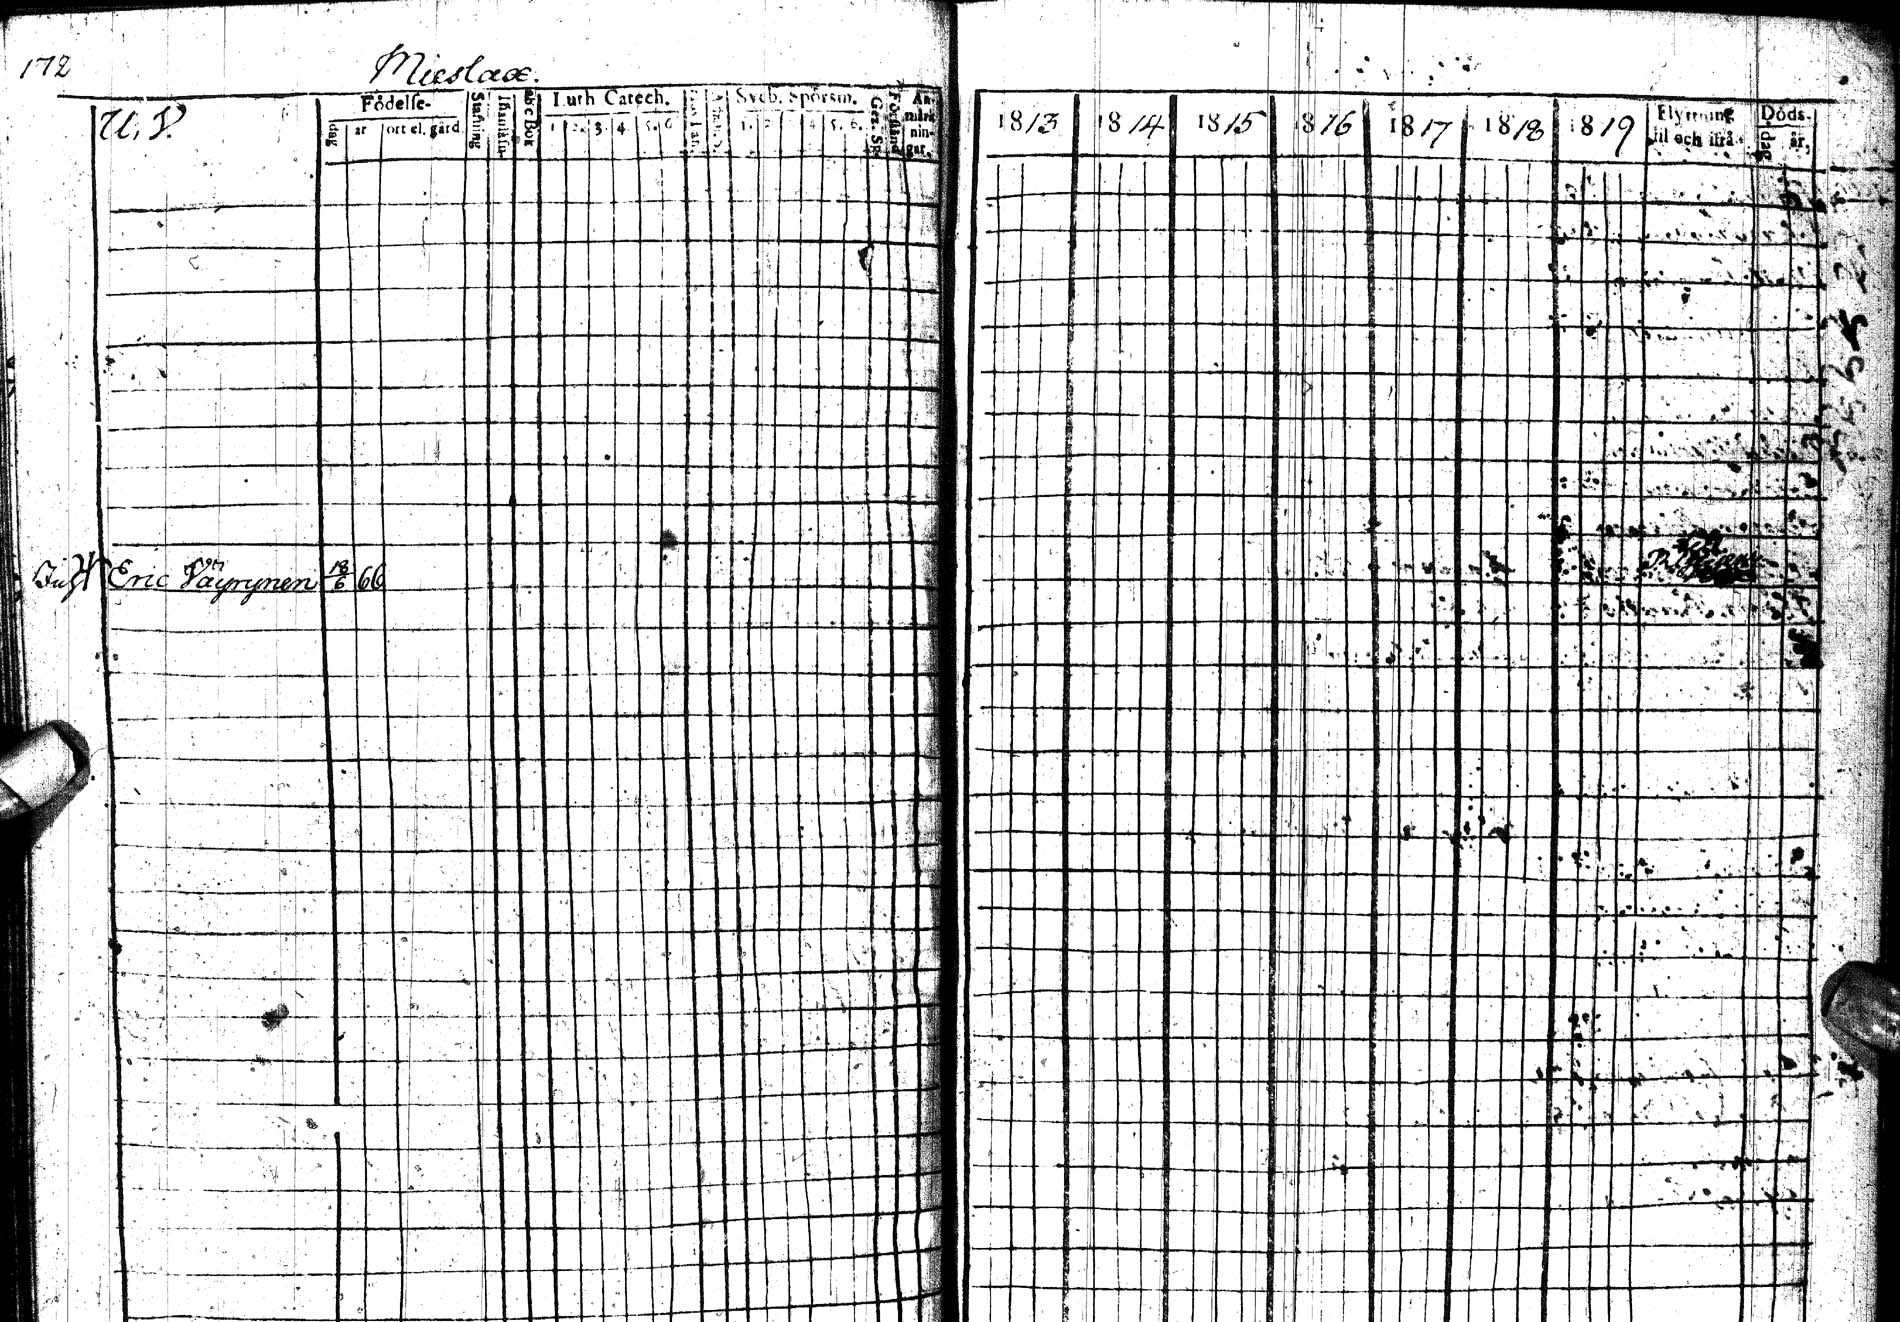 172
Mieslax.
U. V.
Födelse-
dag år ort el. gård.
Stafning
abc Bok
Luth Catech.
1. 2. 3. 4. 5. 6
Sveb. Spörsm.
1. 2 4 5. 6.
Förstånd
An-
märk
nin-
gar.
1813 1814 1815 1816 1817 1818 1819
Flyttning
til och ifrå.
Döds-
dag år.
Eric Väyrynen 18/6 66